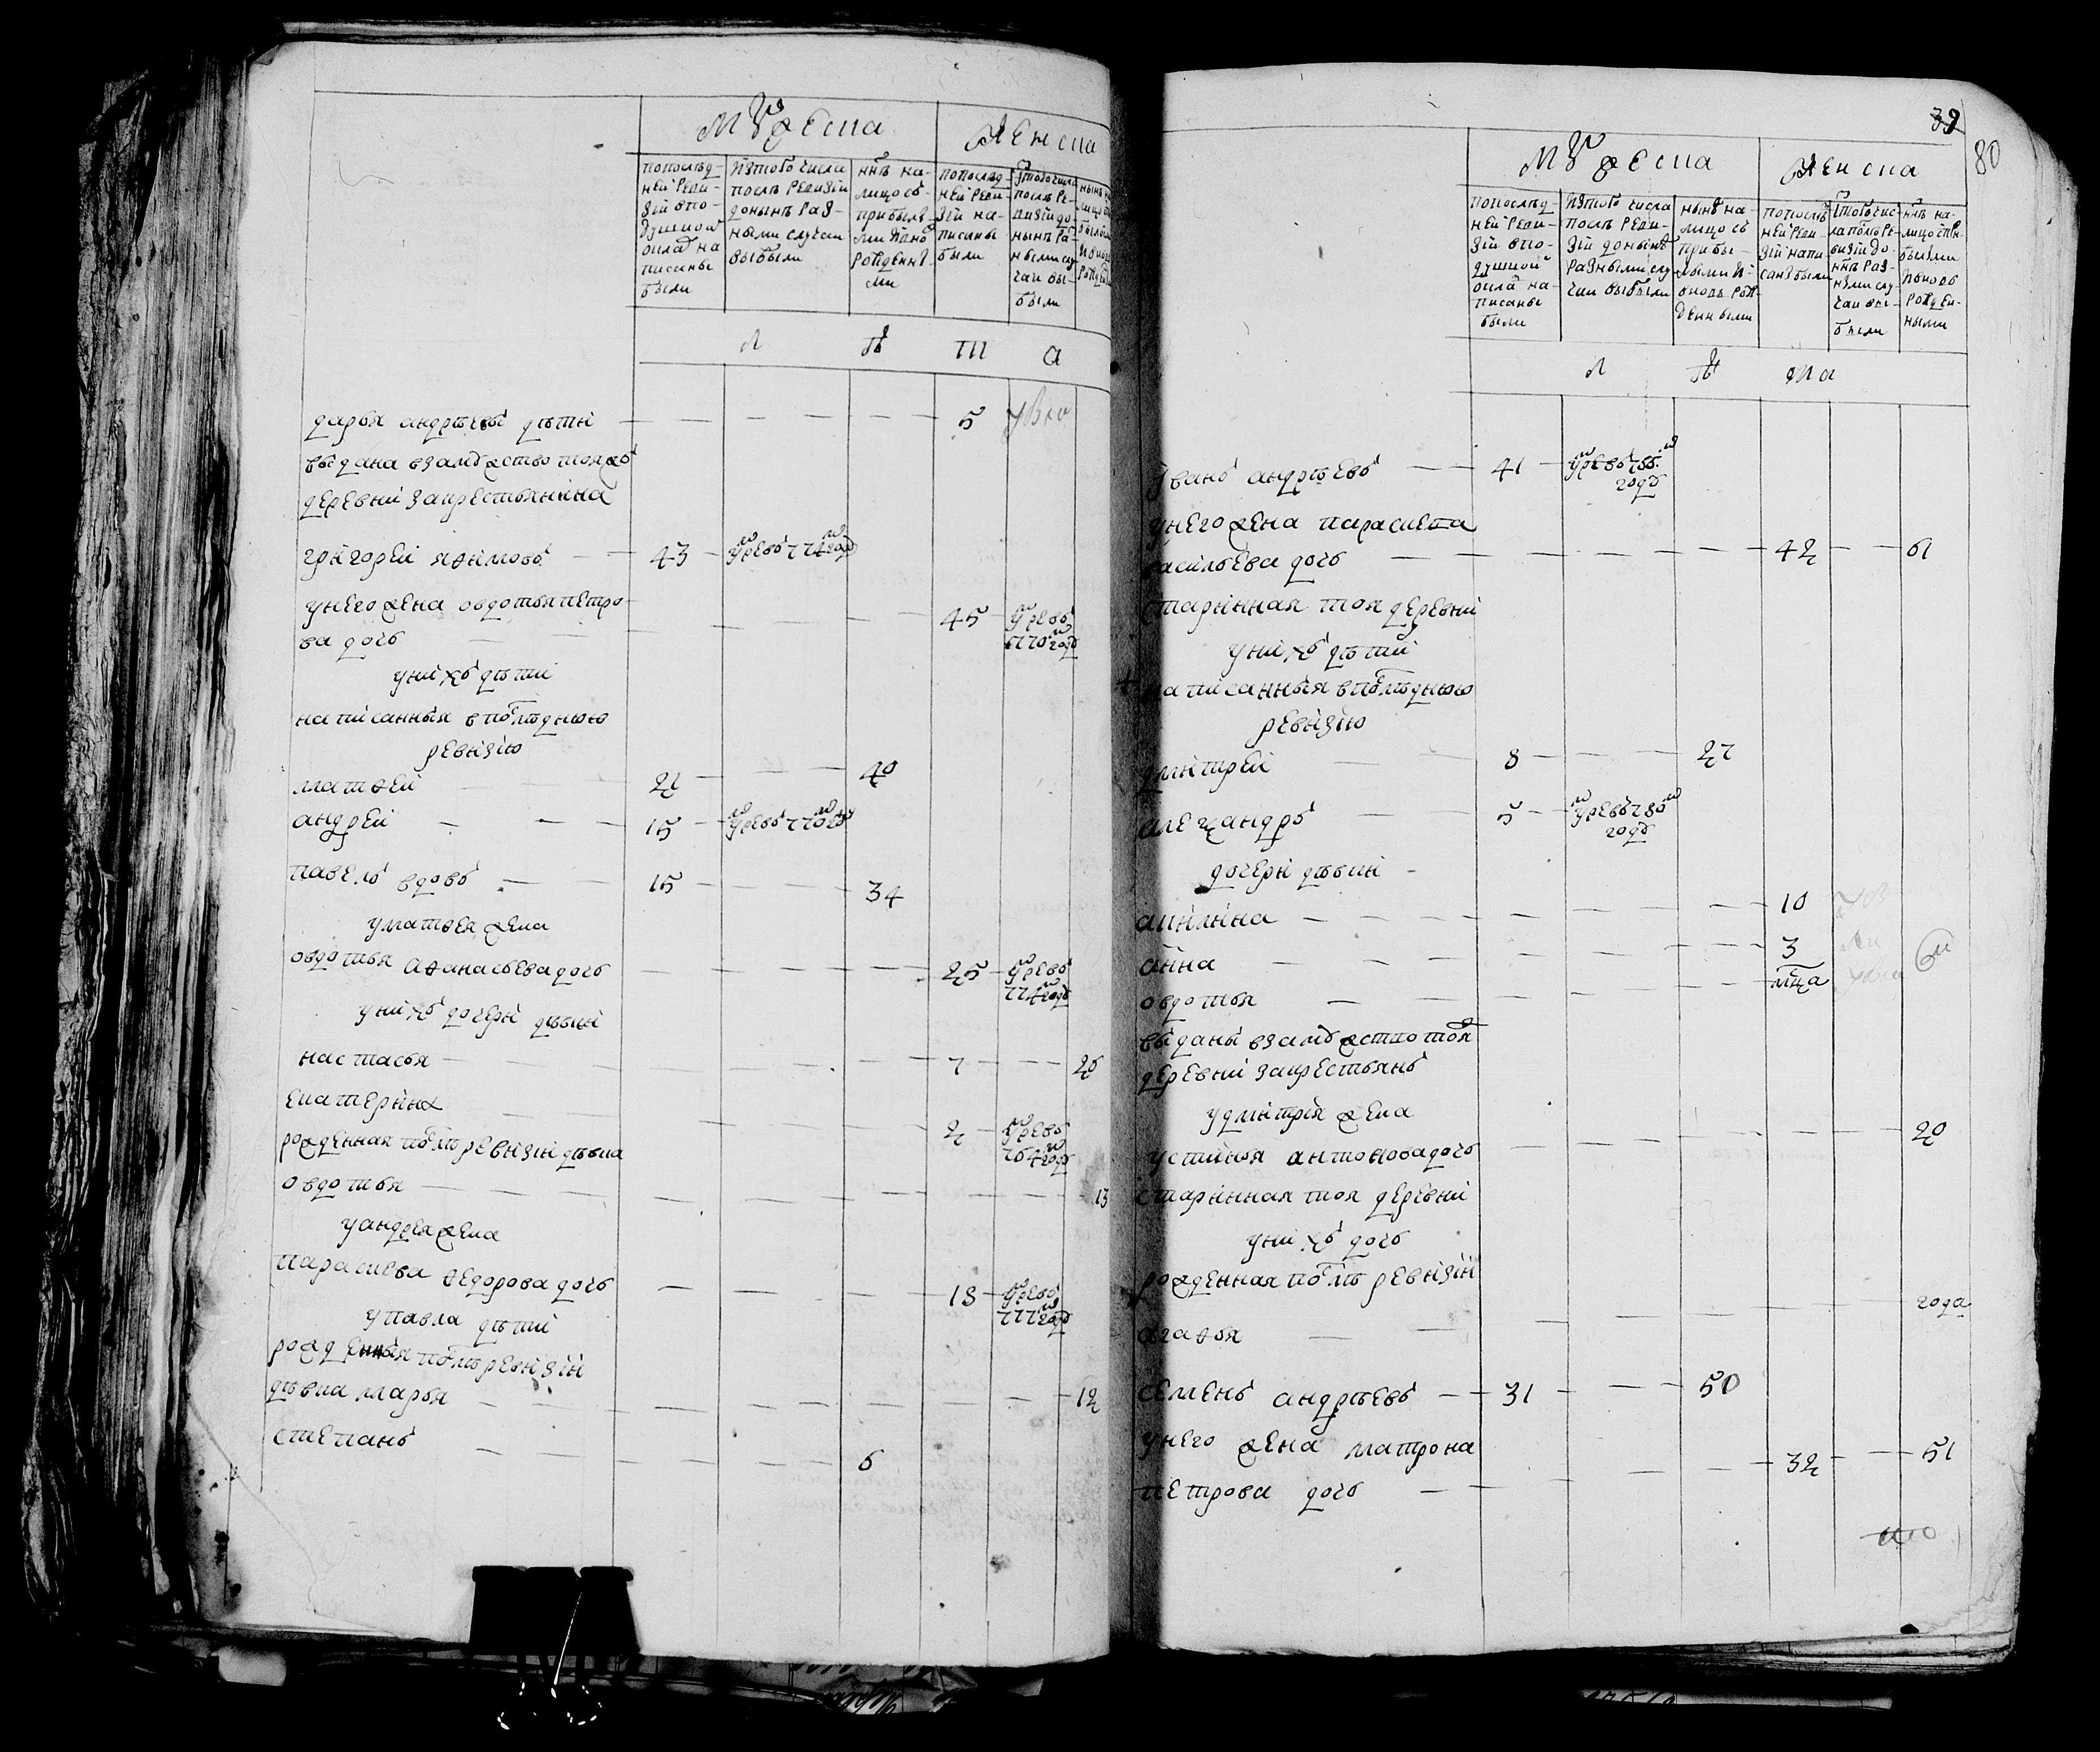 МУжеска
Женска
попослѣд-
ней Реви-
зіи впо-
душной
оклад на
писаны
были
Изтого числа
послѣ Ревизіи
донынѣ Раз-
ными случаи
выбыли
ннѣ на-
лицо съ
прибылы-
ми И вно
рожденны-
ми
попослед-
ней Реви-
зіи на-
писаны
были
Ізтого числа
послѣ Ре-
визіи до-
нынѣ Ра-
зными слу-
чаи вы-
были
Л Ѣ Т А
дарья андрѣевы дѣти — — — — 5
выдана взамужство тояжъ
деревни закрестьянина
григорей яѳимовъ — 43 — умре въ 774м году
унего жена овдотья петро-
ва дочь — — 45 — умре въ 770м году
унихъ дѣти
написанныя в послѣднюю
ревизию
матѳей — 21 — — 40
андрей — — 15 — умре въ 770м году
павелъ вдовъ — 15 — — — 34
уматвея жена
овдотья аѳанасьева дочь — — — — 25 — умре въ 774м году
унихъ дочери дѣвки
настасья — — — — 7 — — 26
екатерина — — — 2 умре въ 764м году
рожденная послѣ ревизіи дѣвка
овдотья — — — — — — 13
уандрея жена
параскева ѳедорова дочь — — — 18 — умре въ 777м году
упавла дѣти
рожденныя послѣ ревизіи
дѣвка марья — — — — — 12
степанъ — — — — 6
39
80
МУжеска
Женска
попослѣд-
ней Реви-
зіи впо-
душной
окла на-
писаны
были
Изтого числа
послѣ Реви-
зіи донынѣ
Разными слу-
чаи выбыли
нынѣ на-
лицо съ
прибы-
лыми И-
вновь рож-
денными
попослѣ
ней Реви-
зіи напи-
саны были
Ізтого чис-
ла послѣ Ре-
визіи до-
ннѣ Раз-
ными слу-
чаи вы-
были
ннѣ на-
лицо спри-
былыми
Ивновь
Рожден-
ными
Л Ѣ та
Іванъ андрѣевъ — 41 — умре въ 786м году
унего жена параскева
васильева дочь — — — — 42 — 61
старинная тоя деревни
унихъ дѣти
написанныя в послѣднюю
ревизию
дмитрей — 8 — — 27
алеѯандръ — 5 — умре въ 780м году
дочери дѣвки —
акилина — — — — — 10
анна — — — — — 3
овдотья — — — — — мца
выданы взамужство тояж
деревни закрестьянъ
удмитрія жена
устинья антонова дочь — — — — — 20
старинная тоя деревни
унихъ дочь
рожденная послѣ ревизіи
агаѳья — — — — года
семенъ андрѣевъ — 31 — — 50
унего жена матрона
петрова дочь — — — — 32 — 51